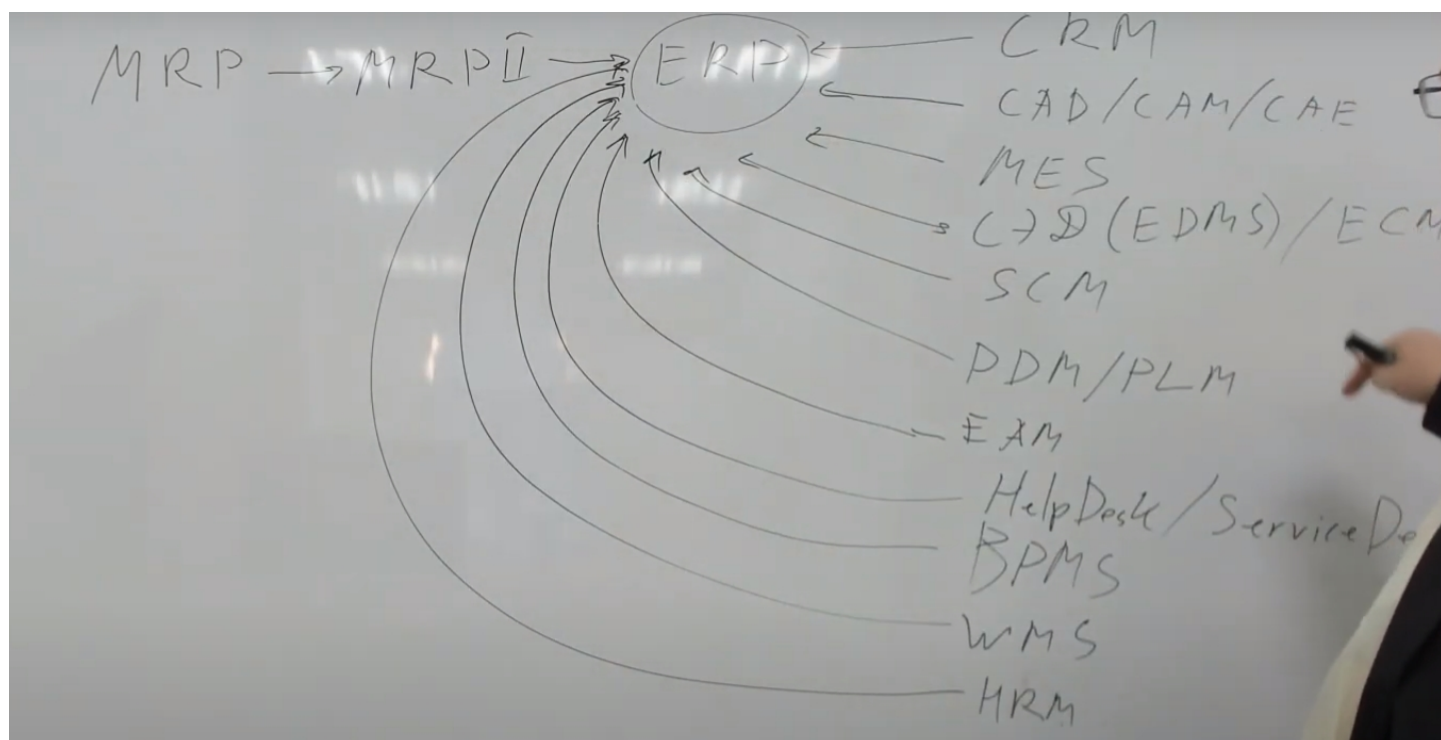 MRP → MRP II → ERP
CRM
CAD/CAM/CAE
MES
СЭД (EDMS) / ECM
SCM
PDM/PLM
EAM
HelpDesk / ServiceDe
BPMS
WMS
HRM